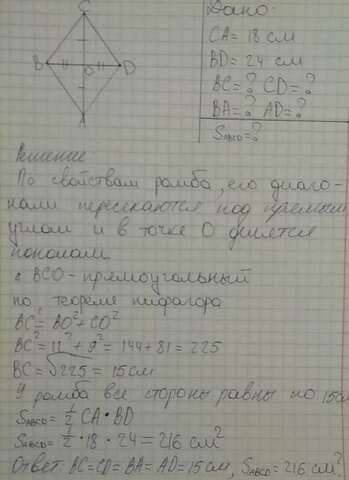 C
B
O
D
A
Дано:
CA = 18 см
BD = 24 см
BC = ? CD = ?
BA = ? AD = ?
S_ABCD = ?
Решение
По свойствам ромба, его диаго-
нали пересекаются под прямым
углом и в точке О делятся
пополам.
BCO - прямоугольный
по теореме пифагора
BC² = BO² + CO²
BC² = 12² + 9² = 144 + 81 = 225
BC = √225 = 15 см
У ромба все стороны равны по 15см
S_ABCD = 1/2 CA • BD
S_ABCD = 1/2 • 18 • 24 = 216 см²
Ответ BC = CD = BA = AD = 15 см, S_ABCD = 216 см²